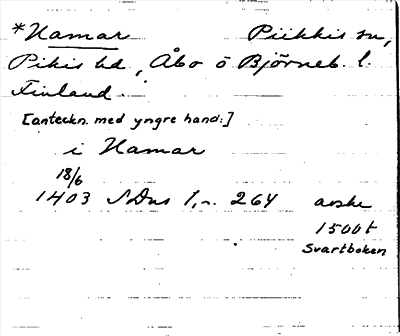 *Hamar Piikkis sn,
Pikis hd, Åbo o Björneb. l.
Finland.
[anteckn. med yngre hand:]
i Hamar
18/6
1403 SDns 1, s. 264 avskr
1500t
Svartboken